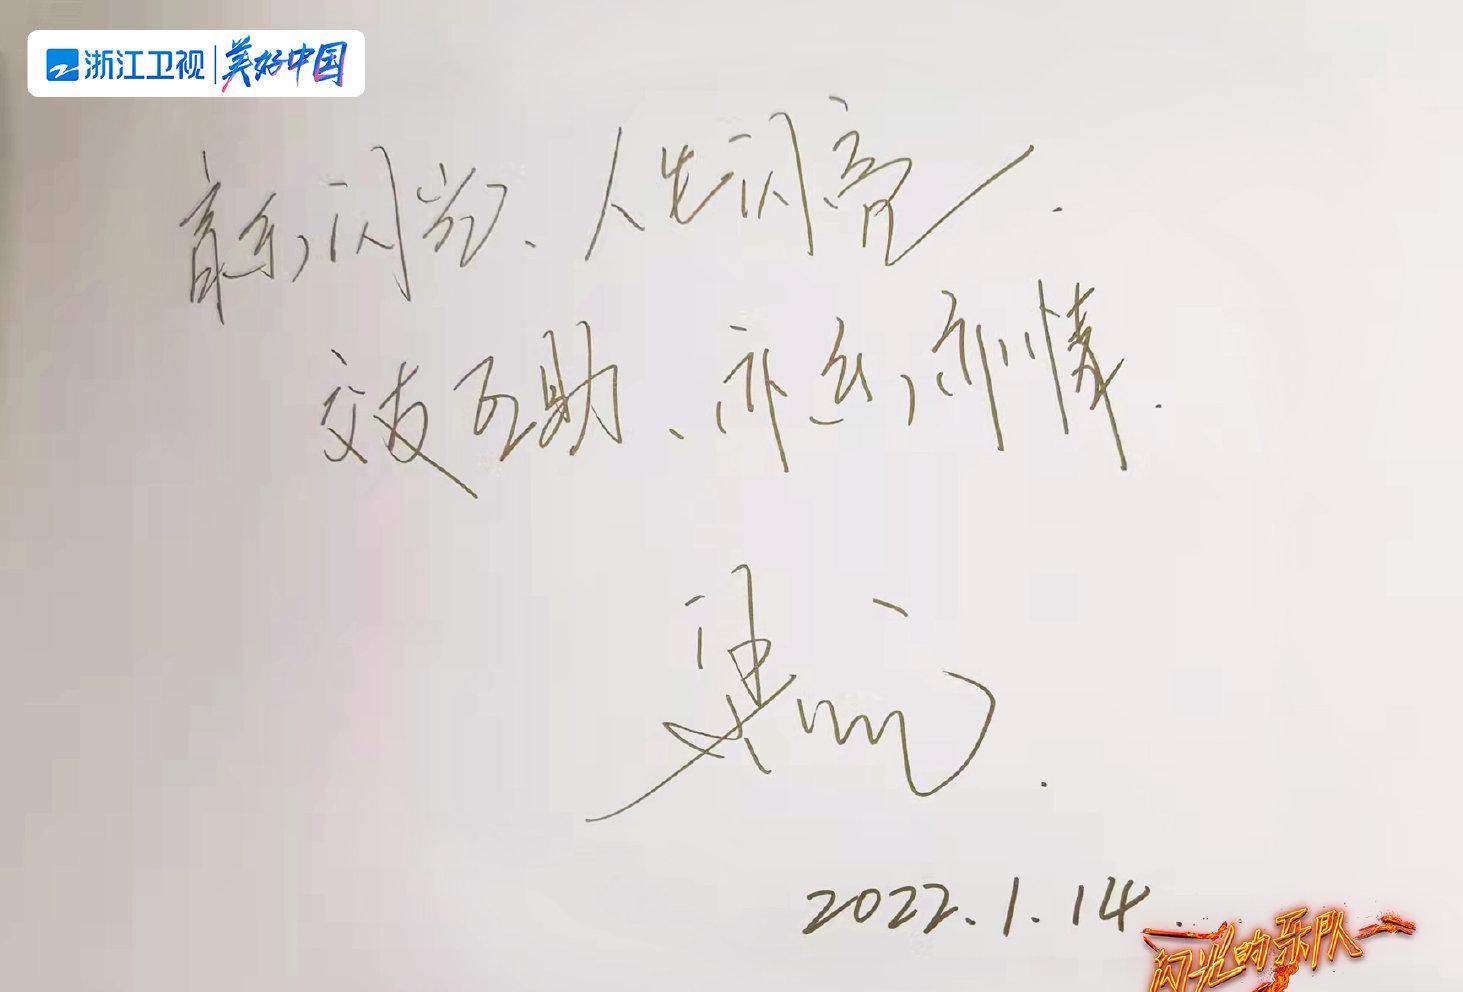 浙江卫视 美好中国
闪光、人生闪亮.
交友互助、亦乐,亦情.
2022.1.14.
闪光的乐队